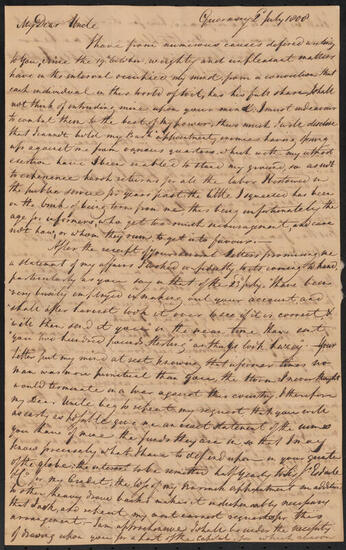 My Dear Uncle Guernsey 2 July 1808
I have from numerous causes defered writing
to You, since the 19 October, weighty and unpleasant matters
have in the interval occupied my mind, from a conviction that
each individual in this world of woe, has his full share, I shall
not think of intruding mine upon your mind, I must endeavour
to combat them to the best of my power, thus much I will disclose
that I cannot hold my appointment, enemies having sprung
up against me from various quarters which with my utmost
have I been enabled to stand my ground, so as not
to experience harsh returns for all the labor I bestowed in
the public service for years past, the little I inherited has been
on the of being torn from me, this being unfortunately the
age for informers, who get too much encouragement, and care
not how, or whom they ruin, to get into favour.
After the receipt of your several letters promising me
a statement of my affairs I looked impatiently to its coming to hand
particularly as you say in that of the 23 July. I have been
very busily employed in making out your account and
shall after harvest look it over to see if it is correct, &
will then send it you, in the mean time have sent
you two hundred pounds sterling, as things look hazy. Your
letter put my mind at rest knowing that upon former times no
man was more punctual than you, the storm I never thought
would terminate in a war against this country. I therefore
my Dear Uncle beg to repeat my request that you will
as early as possible give me an exact statement of the sums
you have of mine the funds they are in so that I may
know precisely what I have to depend upon in your quarter
of the globe, the interest to be remitted half yearly to
for my credit, the loss of my appointment in addition
to other heavy draw backs makes it indispensably necessary
that I ask, and repeat my most earnest request, for this
arrangement. I am apprehensive I shall be under the necessity
of drawing upon you for a part of the capital, for which reason